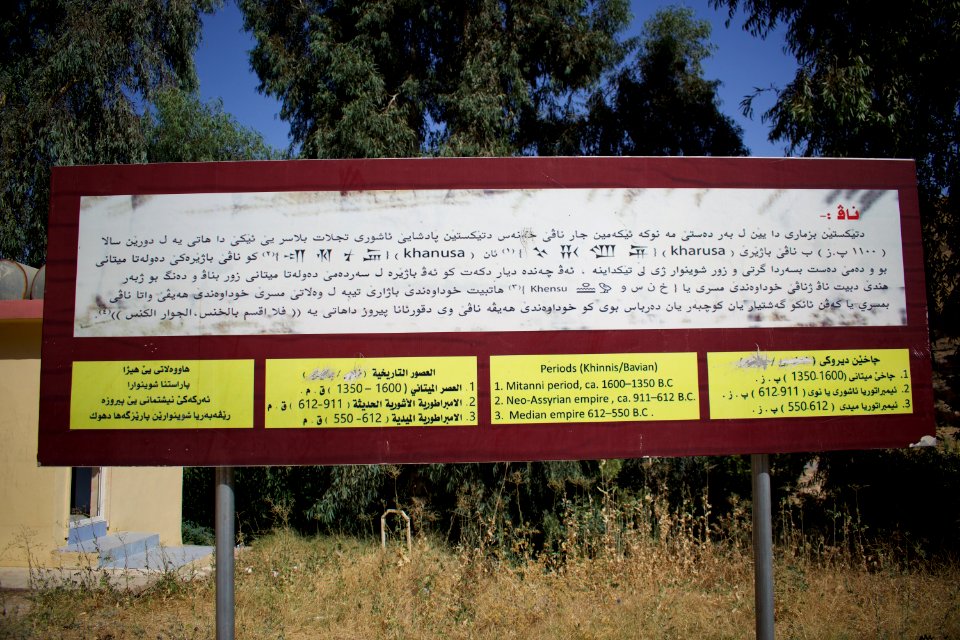 ناڤ :-
دتێکستێن بزماری دا یێن ل بەر دەستی مە نوکە ئێکەمین جار ناڤێ خینەس دتێکستێن پادشایێ ئاشوری تجلات بلاسر یێ ئێکێ دا هاتی یە ل دورێن سالا
(١١٠٠ پ.ز) ب ناڤێ باژێری ( kharusa ) (١) ئان ( khanusa ) (٢) کو ناڤێ باژێرەکێ دەولەتا میتانی
بو و دەمێ دەست بسەردا گرتی و زور شوینوار ژی لێ تێکداینە . ئەڤ چەندە دیار دکەت کو ئەڤ باژێرە ل سەردەمێ دەولەتا میتانی زور بناڤ و دەنگ بو ژبەر
هندێ دبیت ناڤ ژناڤێ خوداوەندێ مسری یا ( خ ن س و Khensu ) (٣) هاتبیت خوداوەندێ باژاری تیپە ل وەلاتێ مسری خوداوەندێ هەیڤێ واتا ناڤێ
بمسری یا کەڤن ئانکو گەشتیار یان کوچبەر یان دەرباس بوی کو خوداوەندێ هەیڤە ناڤێ وی دقورئانا پیروز داهاتی یە (( فلا اقسم بالخنس،الجوار الکنس )) (٤).
جاخێن دیروکی
١. جاخێ میتانی (1600ـ1350 ) پ . ز .
٢. ئیمبراتوریا ئاشوری یا نوی (911ـ612 ) پ . ز .
٣. ئیمبراتوریا میدی (612ـ550 ) پ . ز .
Periods (Khinnis/Bavian)
1. Mitanni period, ca. 1600–1350 B.C
2. Neo-Assyrian empire , ca. 911–612 B.C.
3. Median empire 612–550 B.C .
العصور التاريخية
1. العصر الميتاني (1600 – 1350 ) ق . م .
2. الامبراطورية الأشورية الحديثة (911-612 ) ق . م .
3. الامبراطورية الميدية (612– 550 ) ق . م
هاوولاتی یێ هێژا
پاراستنا شوینوارا
ئەرکەکێ نیشتمانی یێ پیروزە
رێڤەبەریا شوینوارێن پارێزگەها دهوک